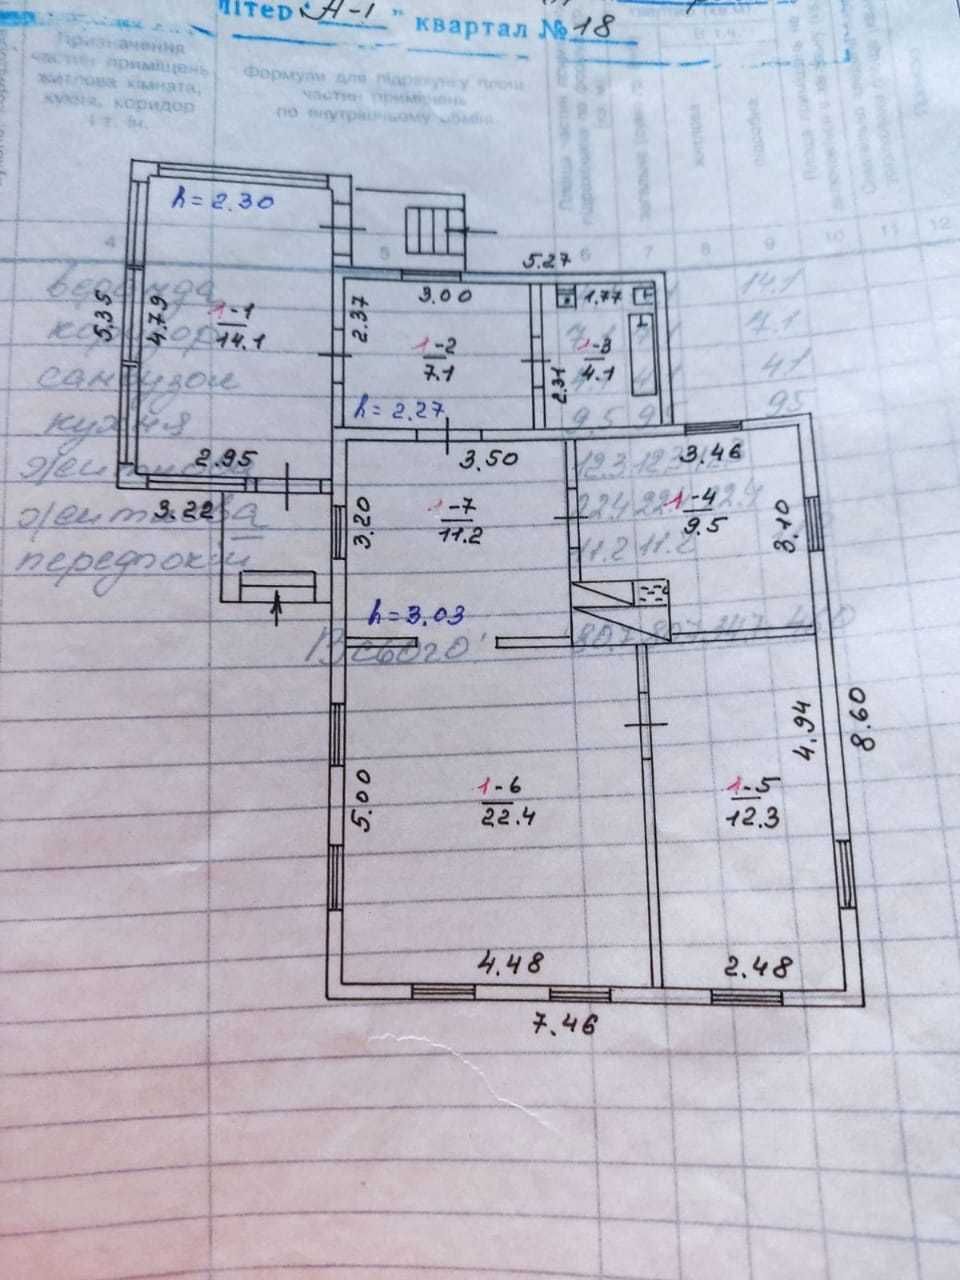 літер "А-1" квартал № 18
Призначення
частин приміщень
житлова кімната,
кухня, коридор
і т. ін.
Формули для підрахунку площ
частин приміщень
по внутрішньому обміру
житлова
підсобна
4 5 6 7 8 9 10 11 12
h=2.30
5.27
веранда 14.1
3.00 1.77
5.35 4.79 1-1 2.37
14.1
коридор 7.1
1-2
7.1
1-3
4.1
2.31
санвузол 4.1
h=2.27
кухня 9.5 9.5
2.95 3.50 3.46
житлова 12.3 12.3
3.22 3.20 1-7
11.2
1-4
9.5
3.10
житлова 22.4 22.4 22.4
передпокій 11.2 11.2
h=3.03
Всього: 80.7
4.94 8.60
5.00 1-6
22.4
1-5
12.3
4.48 2.48
7.46